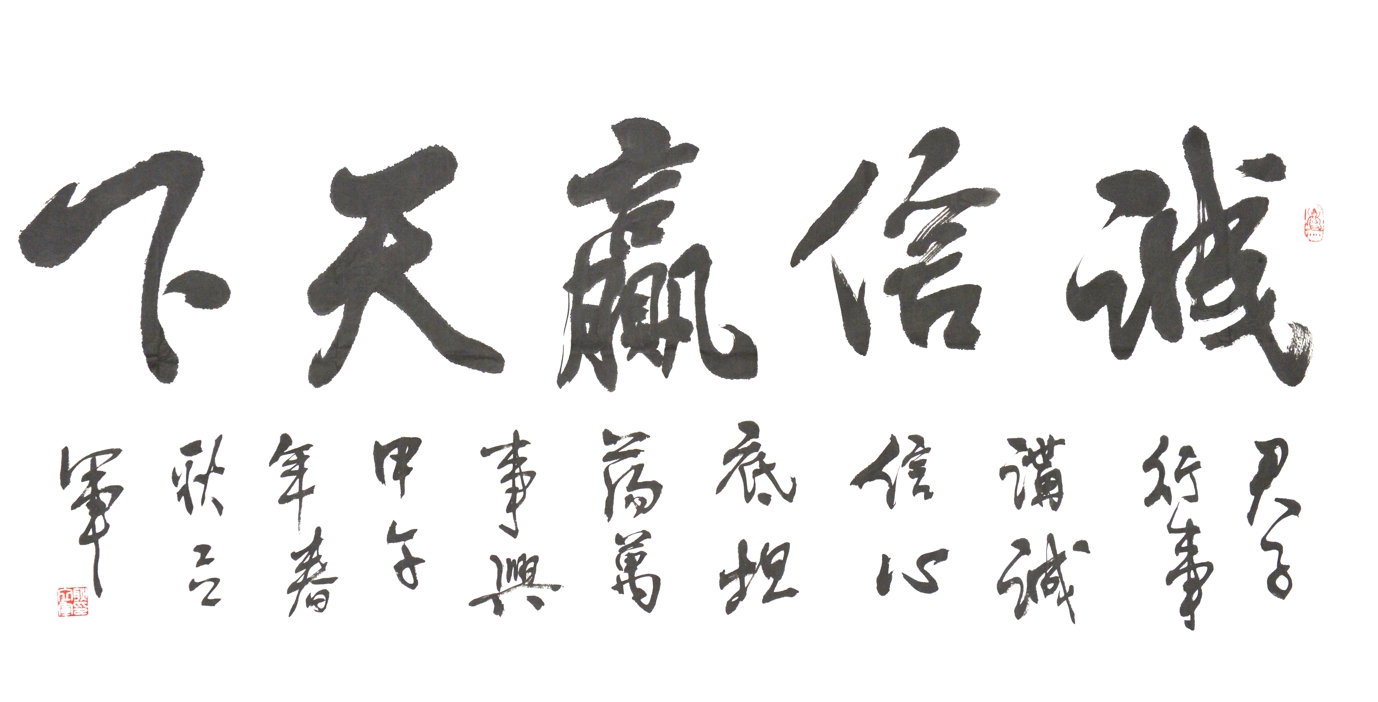 誠信贏天下
君子
行事
講誠
信心
底坦
蕩萬
事興
甲午
年春
耿立
軍